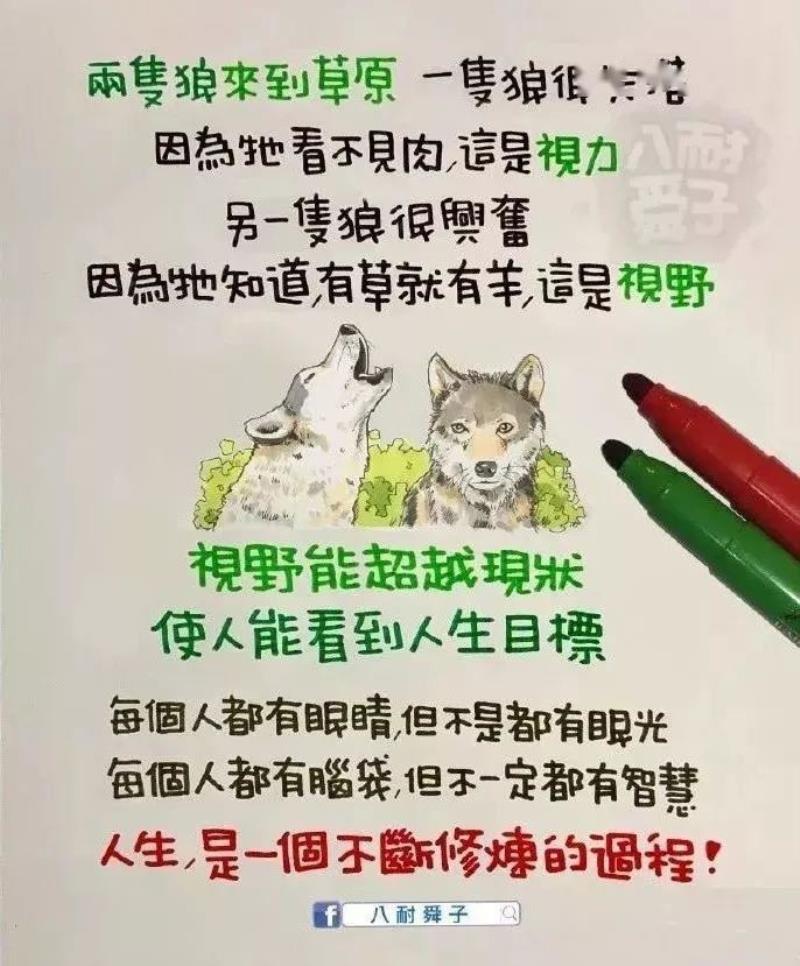 兩隻狼來到草原 一隻狼很
因為牠看不見肉,這是視力
八耐
舜子
另一隻狼很興奮
因為牠知道,有草就有羊,這是視野
視野能超越現狀
使人能看到人生目標
每個人都有眼睛,但不是都有眼光
每個人都有腦袋,但不一定都有智慧
人生,是一個不斷修煉的過程!
f 八耐舜子